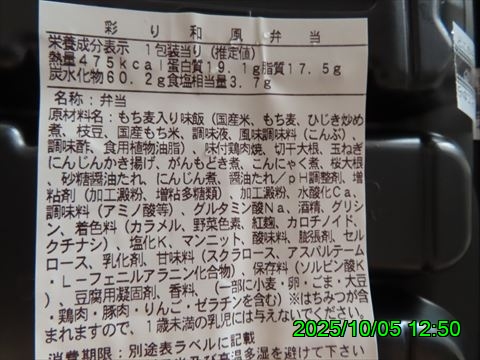 彩り和風弁当
栄養成分表示 1包装当り(推定値)
熱量475kcal蛋白質19.1g脂質17.5g
炭水化物60.2g食塩相当量3.7g
名称:弁当
原材料名:もち麦入り味飯(国産米、もち麦、ひじき炒め
煮、枝豆、国産もち米、調味液、風味調味料(こんぶ)、
調味酢、食用植物油脂)、味付鶏肉焼、切干大根、玉ねぎ
にんじんかき揚げ、がんもどき煮、こんにゃく煮、桜大根
、砂糖醤油たれ、にんじん煮、醤油たれ/pH調整剤、増
粘剤(加工澱粉、増粘多糖類)、加工澱粉、水酸化Ca、
調味料(アミノ酸等)、グルタミン酸Na、酒精、グリシ
ン、着色料(カラメル、野菜色素、紅麹、カロチノイド、
クチナシ)、塩化K、マンニット、酸味料、膨張剤、セル
ロース、乳化剤、甘味料(スクラロース、アスパルテーム
・L-フェニルアラニン化合物)、保存料(ソルビン酸K
)、豆腐用凝固剤、香料、(一部に小麦・卵・ごま・大豆
・鶏肉・豚肉・りんご・ゼラチンを含む)※はちみつが含
まれますので、1歳未満の乳児には与えないでください。
消費期限:別途表ラベルに記載
高温多湿を避けて下さい
2025/10/05 12:50